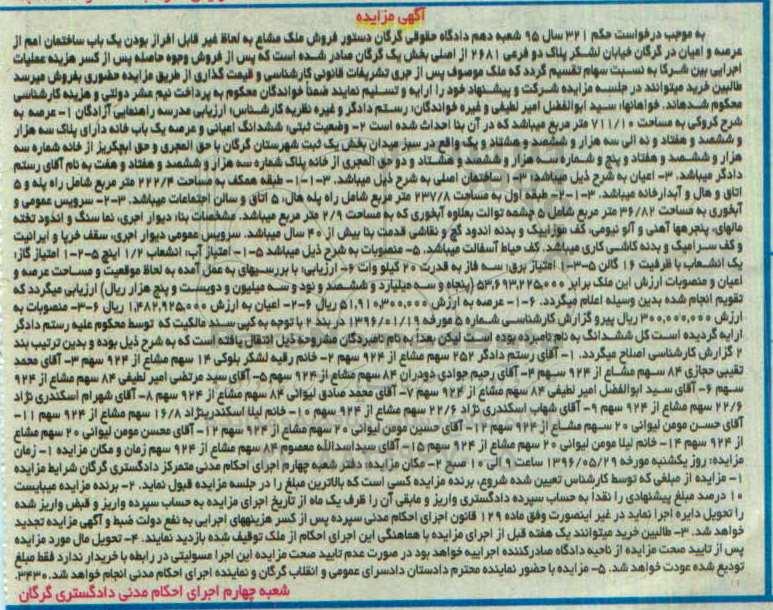 آگهی مزایده
به موجب درخواست حکم ۳۲۱ سال ۹۵ شعبه دهم دادگاه حقوقی گرگان دستور فروش ملک مشاع به لحاظ غیر قابل افراز بودن یک باب ساختمان اعم از
عرصه و اعیان در گرگان خیابان لشکر پلاک دو فرعی ۲۶۸۱ از اصلی بخش یک گرگان صادر شده است که پس از فروش وجوه حاصله پس از کسر هزینه عملیات
اجرایی بین شرکا به نسبت سهام تقسیم گردد که ملک موصوف پس از جری تشریفات قانونی کارشناسی و قیمت گذاری از طریق مزایده حضوری بفروش میرسد
طالبین خرید میتوانند در جلسه مزایده شرکت و پیشنهاد خود را ارایه و تسلیم نمایند ضمناً خواندگان محکوم به پرداخت نیم عشر دولتی و هزینه کارشناسی
محکوم شده‌اند. خواهانها: سید ابوالفضل امیر لطیفی و غیره خواندگان: رستم دادگر و غیره نظریه کارشناس: ارزیابی مدرسه راهنمایی آزادگان ۱- عرصه به
شرح کروکی به مساحت ۷۱۱/۱۰ متر مربع میباشد که در آن بنا احداث شده است ۲- وضعیت ثبتی: ششدانگ اعیانی و عرصه یک باب خانه دارای پلاک سه هزار
و ششصد و هفتاد و نه الی سه هزار و ششصد و هشتاد و یک واقع در سبز میدان بخش یک ثبت شهرستان گرگان با حق المجری و حق ابچکریز از خانه شماره سه
هزار و ششصد و هفتاد و پنج و شماره سه هزار و ششصد و هشتاد و دو حق المجری از خانه پلاک شماره سه هزار و ششصد و هفتاد و هفت به نام آقای رستم
دادگر میباشد. ۳- اعیان به شرح ذیل میباشد: ۳-۱- ساختمان اصلی به شرح ذیل میباشد. ۳-۱-۱- طبقه همکف به مساحت ۲۲۲/۴ متر مربع شامل راه پله و ۵
اتاق و هال و آبدارخانه میباشد. ۳-۱-۲- طبقه اول به مساحت ۲۳۷/۸ متر مربع شامل راه پله هال، ۵ اتاق و سالن اجتماعات میباشد. ۳-۲- سرویس عمومی و
آبخوری به مساحت ۳۶/۸۲ متر مربع شامل ۵ چشمه توالت بعلاوه آبخوری که به مساحت ۲/۹ متر مربع میباشد. مشخصات بنا: دیوار اجری، نما سنگ و اندود تخته
ماله‌ای، پنجره‌ها آهنی و آلو نیومی، کف موزاییک و بدنه اندود گچ و نقاشی قدمت بنا بیش از ۴۰ سال میباشد. سرویس عمومی دیوار اجری، سقف خرپا و ایرانیت
و کف سرامیک و بدنه کاشی کاری میباشد. کف حیاط آسفالت میباشد. ۵- منصوبات به شرح ذیل میباشد ۵-۱- امتیاز آب: انشعاب ۱/۲ اینچ ۵-۲- امتیاز گاز:
یک انشعاب با ظرفیت ۱۶ گالن ۵-۳- امتیاز برق: سه فاز به قدرت ۲۰ کیلو وات ۶- ارزیابی: با بررسیهای به عمل آمده به لحاظ موقعیت و مساحت عرصه و
اعیان و منصوبات ارزش این ملک برابر ۵۳,۶۹۳,۲۲۵,۰۰۰ (پنجاه و سه میلیارد و ششصد و نود و سه میلیون و دویست و پنج هزار ریال) ارزیابی میگردد که
تقویم انجام شده بدین وسیله اعلام میگردد. ۶-۱- عرصه به ارزش ۵۱,۹۱۰,۳۰۰,۰۰۰ ریال ۶-۲- اعیان به ارزش ۱,۴۸۲,۹۲۵,۰۰۰ ریال ۶-۳- منصوبات به
ارزش ۳۰۰,۰۰۰,۰۰۰ ریال پیرو گزارش کارشناسی شماره ۵ مورخه ۱۳۹۶/۰۱/۱۹ در بند ۲ با توجه به کپی سند مالکیت که توسط محکوم علیه رستم دادگر
ارایه گردیده است کل ششدانگ به نام نامبرده بوده است لیکن بعداً به نام نامبردگان مشروحه ذیل انتقال یافته است که به شرح ذیل بوده و بدین ترتیب بند
۲ گزارش کارشناسی اصلاح میگردد. ۱- آقای رستم دادگر ۲۵۲ سهم مشاع از ۹۲۴ سهم ۲- خانم رقیه لشکر بلوکی ۱۴ سهم مشاع از ۹۲۴ سهم ۳- آقای محمد
تقیبی حجازی ۸۴ سهم مشاع از ۹۲۴ سهم ۴- آقای رحیم جوادی دودران ۸۴ سهم مشاع از ۹۲۴ سهم ۵- آقای سید مرتضی امیر لطیفی ۸۴ سهم مشاع از ۹۲۴
سهم ۶- آقای سید ابوالفضل امیر لطیفی ۸۴ سهم مشاع از ۹۲۴ سهم ۷- آقای محمد صادق لیوانی ۸۴ سهم مشاع از ۹۲۴ سهم ۸- آقای شهرام اسکندری نژاد
۲۲/۶ سهم مشاع از ۹۲۴ سهم ۹- آقای شهاب اسکندری نژاد ۲۲/۶ سهم مشاع از ۹۲۴ سهم ۱۰- خانم لیلا اسکندرینژاد ۱۶/۸ سهم مشاع از ۹۲۴ سهم ۱۱-
آقای حسن مومن لیوانی ۲۰ سهم مشاع از ۹۲۴ سهم ۱۲- آقای حسین مومن لیوانی ۲۰ سهم مشاع از ۹۲۴ سهم ۱۲- آقای محسن مومن لیوانی ۲۰ سهم مشاع
از ۹۲۴ سهم ۱۴- خانم لیلا مومن لیوانی ۲۰ سهم مشاع از ۹۲۴ سهم ۱۵- آقای سیداسدالله معصوم ۸۴ سهم مشاع از ۹۲۴ سهم زمان و مکان مزایده ۱- زمان
مزایده: روز یکشنبه مورخه ۱۳۹۶/۰۵/۲۹ ساعت ۹ الی ۱۰ صبح ۲- مکان مزایده: دفتر شعبه چهارم اجرای احکام مدنی متمرکز دادگستری گرگان شرایط مزایده
۱- مزایده از مبلغی که توسط کارشناس تعیین شده شروع، برنده مزایده کسی است که بالاترین مبلغ را در جلسه مزایده قبول نماید. ۲- برنده مزایده میبایست
۱۰ درصد مبلغ پیشنهادی را نقداً به حساب سپرده دادگستری واریز و مابقی آن را ظرف یک ماه از تاریخ اجرای مزایده به حساب سپرده واریز و قبض واریز شده
را تحویل دایره اجرا نماید در غیر اینصورت وفق ماده ۱۲۹ قانون اجرای احکام مدنی سپرده پس از کسر هزینه‌های اجرایی به نفع دولت ضبط و آگهی مزایده تجدید
خواهد شد. ۳- طالبین خرید میتوانند یک هفته قبل از اجرای مزایده با هماهنگی این اجرای احکام از ملک توقیف شده بازدید نمایند. ۴- تحویل مال مورد مزایده
پس از تایید صحت مزایده از ناحیه دادگاه صادرکننده اجراییه خواهد بود در صورت عدم تایید صحت مزایده این اجرا مسولیتی در رابطه با خریدار ندارد فقط مبلغ
تودیع شده عودت خواهد شد. ۵- مزایده با حضور نماینده محترم دادستان دادسرای عمومی و انقلاب گرگان و نماینده اجرای احکام مدنی انجام خواهد شد. ۳۴۳۰
شعبه چهارم اجرای احکام مدنی دادگستری گرگان